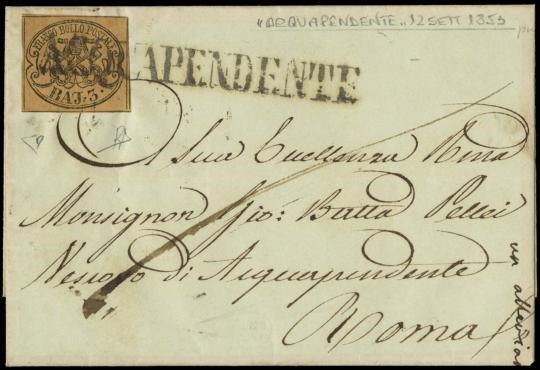 "ACQUAPENDENTE" 12 SETT 1853
FRANCO BOLLO POSTALE
BAJ. 3.
APENDENTE
A Sua Eccellenza Rma
Monsignor Gio: Batta Pellei
Vescovo di Acquapendente
Roma